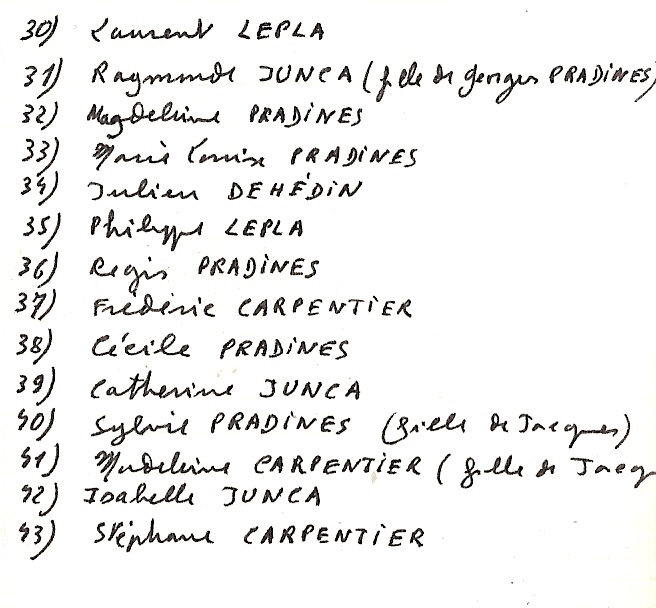 30) Laurent LEPLA
31) Raymonde JUNCA (fille de georges PRADINES)
32) Magdeleine PRADINES
33) Marie Louise PRADINES
34) Julien DEHÉDIN
35) Philippe LEPLA
36) Regis PRADINES
37) Frédéric CARPENTIER
38) Cécile PRADINES
39) Catherine JUNCA
40) Sylvie PRADINES (fille de Jacques)
41) Madeleine CARPENTIER (fille de Jacq
42) Isabelle JUNCA
43) Stéphane CARPENTIER